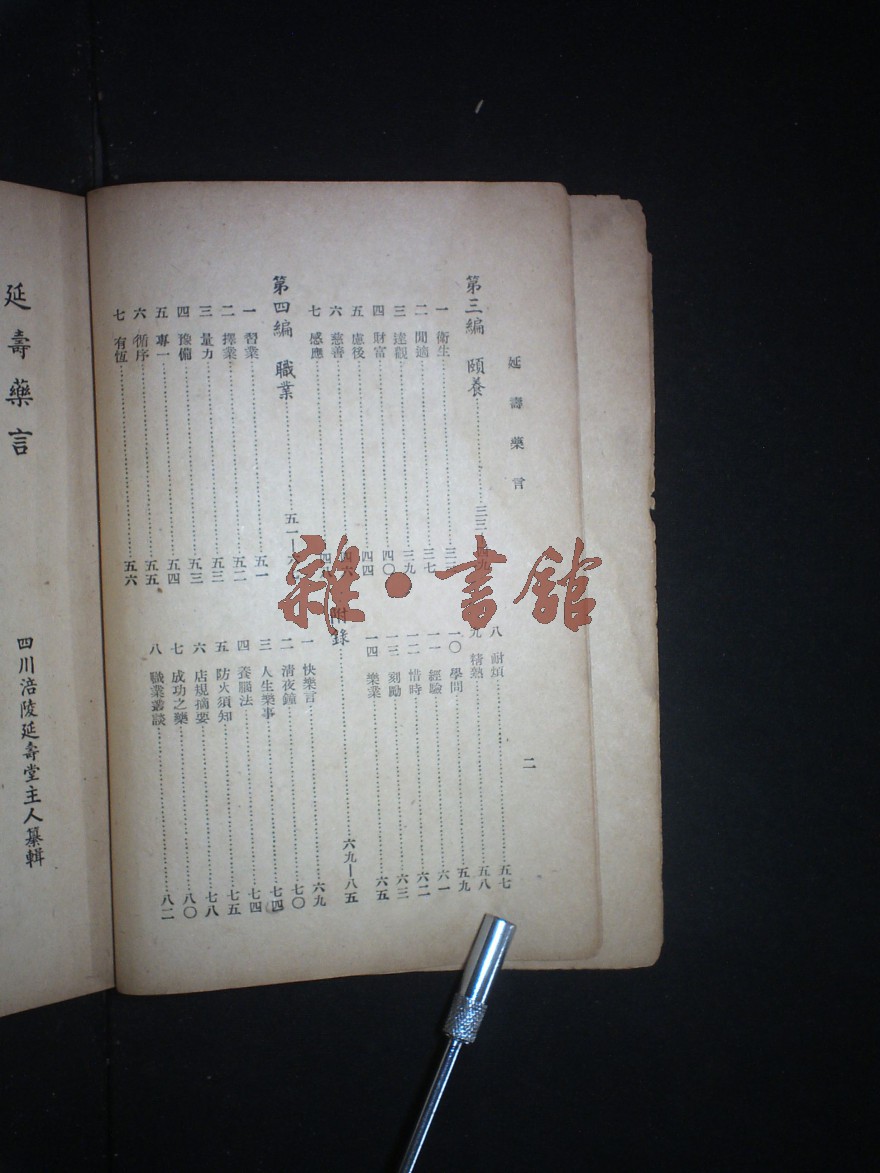 延壽藥言
二
第三編 頤養……三三—四九
一 衛生……三三
二 閒適……三七
三 達觀……三九
四 財富……四〇
五 慮後……四四
六 慈善……四六
七 感應……
第四編 職業……五一—六
一 習業……五一
二 擇業……五二
三 量力……五三
四 豫備……五三
五 專一……五四
六 循序……五五
七 有恆……五六
八 耐煩……五七
九 精熟……五八
一〇 學問……五九
一一 經驗……六一
一二 惜時……六二
一三 刻勵……六三
一四 樂業……六五
附錄……六九—八五
一 快樂言……六九
二 清夜鐘……七〇
三 人生樂事……七四
四 養腦法……七四
五 防火須知……七五
六 店規摘要……七八
七 成功之藥……八〇
八 職業叢談……八二
延壽藥言
四川涪陵延壽堂主人纂輯
雜·書館